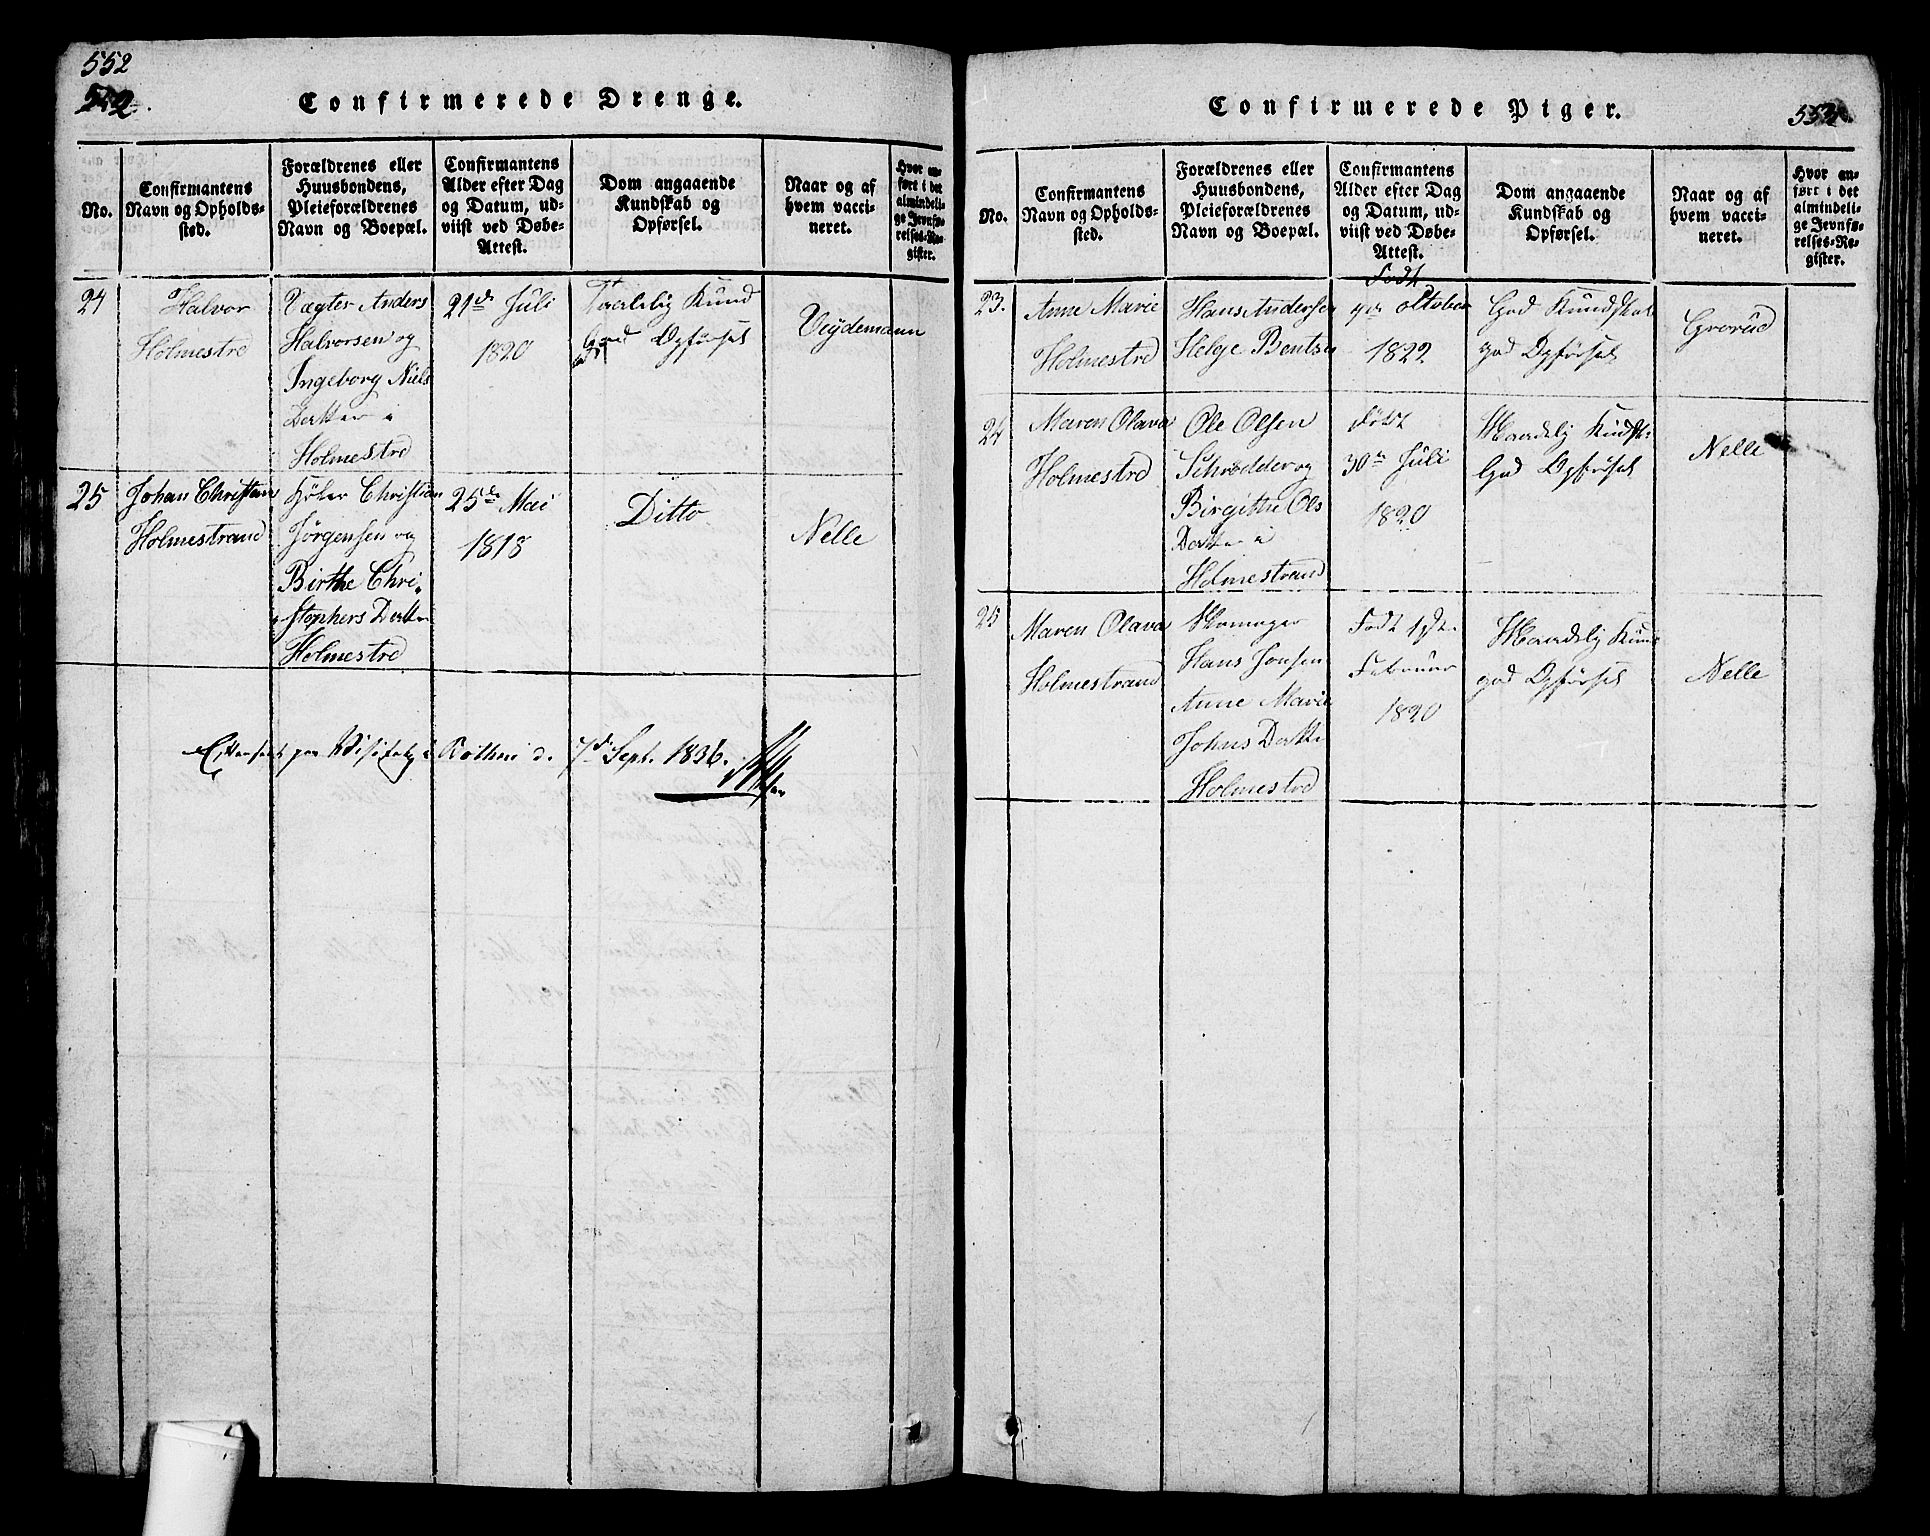 552
Confirmerede Drenge.
No.
Confirmantens
Navn og Opholds-
sted.
Forældrenes eller
Huusbondens,
Pleieforældrenes
Navn og Boepæl.
Confirmantens
Alder efter Dag
og Datum, ud-
viist ved Døbe-
Attest.
Dom angaaende
Kundskab og
Opførsel.
Naar og af
hvem vacci-
neret.
Hvor an-
ført i det
almindeli-
ge Jevnfø-
relses-Re-
gister.
24
Halvor
Holmestrd
Vægter Anders
Halvorsen og
Ingeborg Niels
Datter i
Holmestrd
21de Juli
1820
Taalelig Kund
God Opførsel
Veydemann
25
Johan Christian
Holmestrand
Christian
Jørgensen og
Birthe Chri-
stophers Datter
Holmestrd
25de Mai
1818
Ditto
Nelle
Efterseet paa Visitats i Bothne d. 7de Sept. 1836.
Confirmerede Piger.
553
No.
Confirmantens
Navn og Opholds-
sted.
Forældrenes eller
Huusbondens,
Pleieforældrenes
Navn og Boepæl.
Confirmantens
Alder efter Dag
og Datum, ud-
viist ved Døbe-
Attest.
Dom angaaende
Kundskab og
Opførsel.
Naar og af
hvem vacci-
neret.
Hvor an-
ført i det
almindeli-
ge Jevnfø-
relses-Re-
gister.
23.
Anne Marie
Holmestrd
Hans Andersen
Helge Bentsen
Født
9de Oktober
1822
God Kundskab
god Opførsel
Grorud
24
Maren Olava
Holmestrd
Ole Olsen
Schrødder og
Birgithe Ols
Datter i
Holmestrand
Født
30te Juli
1820
Maadelig Kundsk.
God Opførsel
Nelle
25
Maren Olava
Holmestrand
Hans Jonsen
Anne Marie
Johns Datter
Holmestrd
Født 1ste
Februar
1820
Maadelig Kund
god Opførsel
Nelle